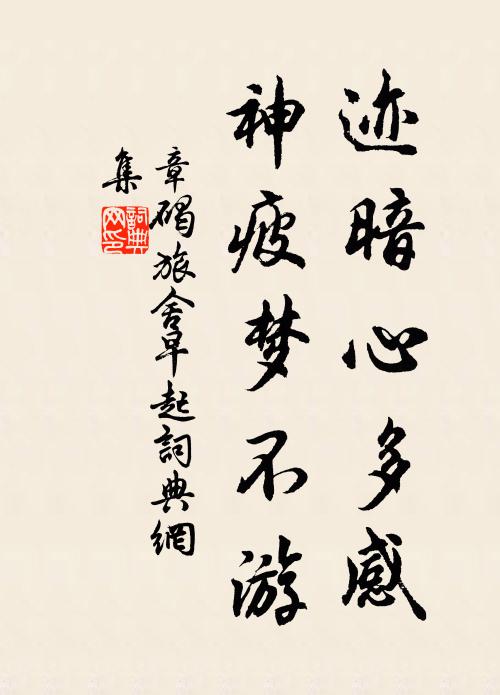 迹暗心多感
神疲梦不游
章碣旅舍早起詞典網
集
詞典
网印